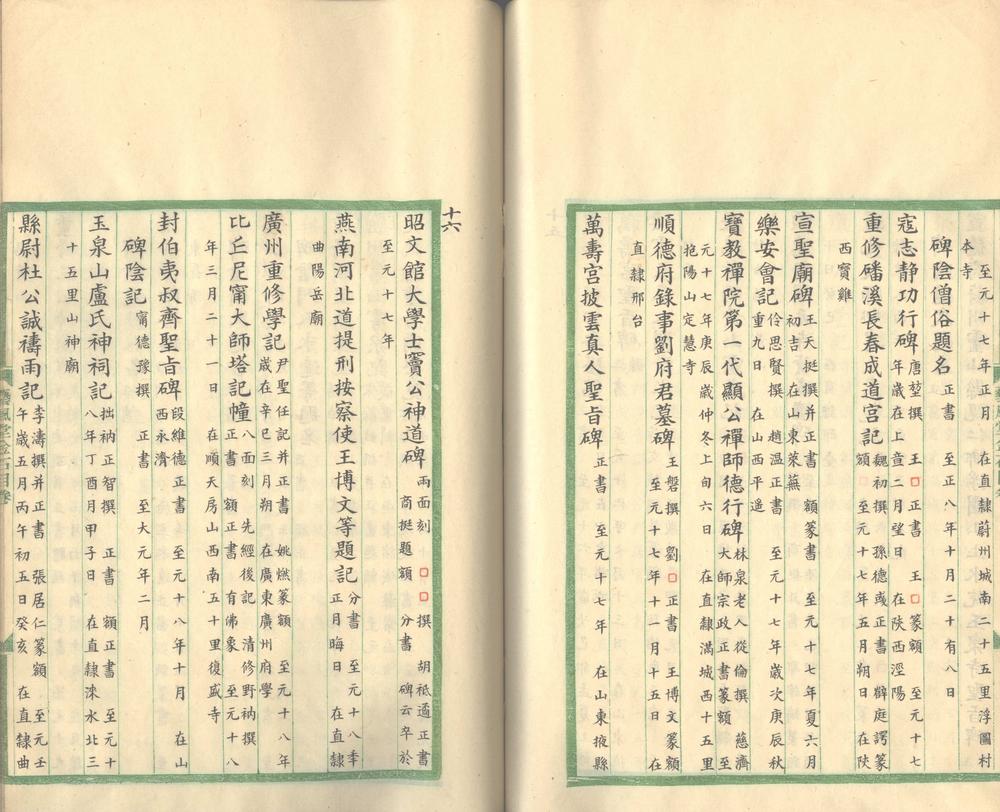 至元十七年正月 在直隸蔚州城南二十五里浮圖村
本寺
碑陰僧俗題名 正書 至元八年十月二十有八日
寇志静功行碑 唐堃撰 王□正書 王□篆額 至元十七
年歲在上章二月望日 在陝西涇陽
重修磻溪長春成道宮記 魏初撰 孫德彧正書 髀庭諤篆
額 至元十七年五月朔日 在陝
西寶雞
宣聖廟碑 王天挺撰并正書 額篆書 至元十七年夏六月
初吉 在山東萊蕪
樂安會記 伶思賢撰 趙溫正書 至元十七年歲次庚辰秋
重九日 在山西平遥
寶教禪院第一代顯公禪師德行碑 林泉老人從倫撰 慈濟
大師宗政正書篆額 至
元十七年庚辰歲仲冬上旬六日 在直隸滿城西十五里
抱陽山定慧寺
順德府錄事劉府君墓碑 王磐撰 劉□正書 王博文篆額
至元十七年十一月十五日 在
直隸邢台
萬壽宮披雲真人聖旨碑 正書 至元十七年 在山東掖縣
十六
昭文館大學士竇公神道碑 兩面刻 □□撰 胡祗遹正書
商挺題額 分書 碑云卒於
至元十七年
燕南河北道提刑按察使王博文等題記 分書 至元十八季
正月晦日 在直隸
曲陽岳廟
廣州重修學記 尹聖任記并正書 姚燃篆額 至元十八年
歲在辛巳三月朔 在廣東廣州府學
比丘尼甯大師塔記幢 八面刻 先經後記 清修野衲撰
正書 額正書 有佛象 至元十八
年三月二十一日 在順天房山西南五十里復盛寺
封伯夷叔齊聖旨碑 段維德正書 至元十八年十月 在山
西永濟
碑陰記 甯德豫撰 正書 至大元年二月
玉泉山盧氏神祠記 拙衲正智撰 正書 額正書 至元十
八年丁酉月甲子日 在直隸淶水北三
十五里山神廟
縣尉杜公誠禱雨記 李濤撰并正書 張居仁篆額 至元壬
午歲五月丙午初五日癸亥 在直隸曲